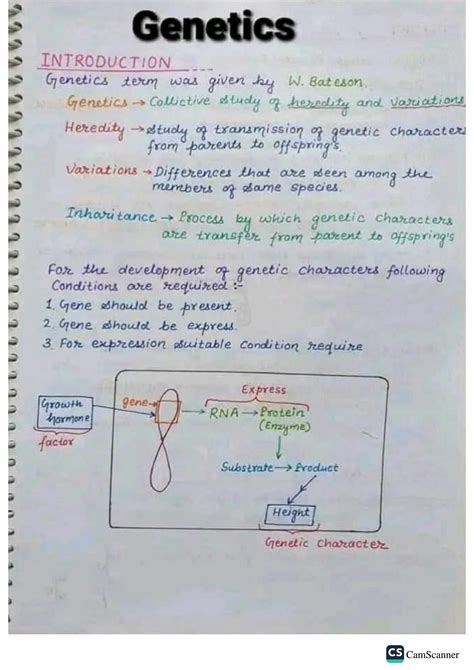 Genetics
INTRODUCTION
Genetics term was given by W. Bateson.
Genetics → Collictive study of heredity and variations
Heredity → study of transmission of genetic character
from parents to offspring's.
Variations → Differences that are seen among the
members of same species.
Inharitance → Process by which genetic characters
are transfer from parent to offspring's
For the development of genetic characters following
Conditions are required :-
1. Gene should be present.
2. Gene should be express.
3. For expression suitable Condition require
Express
Growth
hormone
factor
gene
RNA → Protein
(Enzyme)
Substrate → Product
Height
Genetic character
CS CamScanner